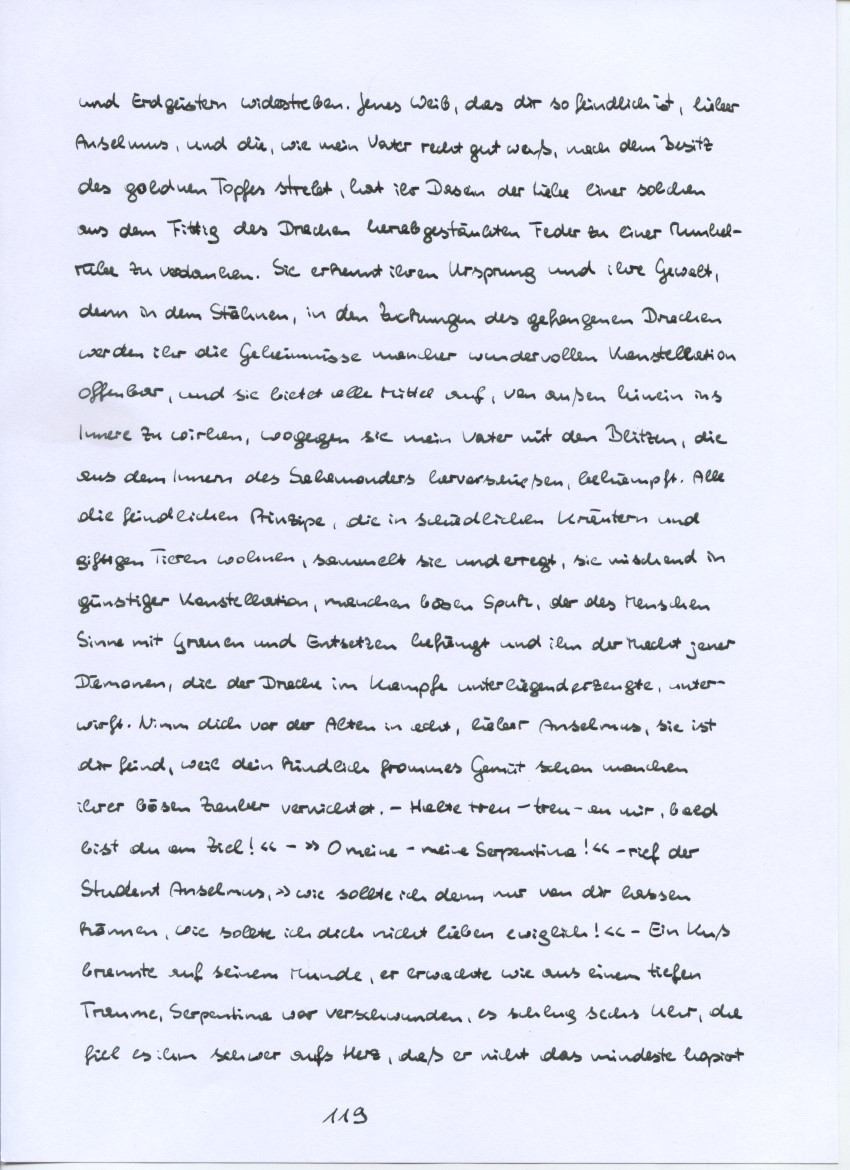 und Erdgeistern widerstreben. Jenes Weib, das dir so feindlich ist, lieber
Anselmus, und die, wie mein Vater recht gut weiß, nach dem Besitz
des goldnen Topfes strebt, hat ihr Dasein der Liebe einer solchen
aus dem Fittig des Drachen herabgestäubten Feder zu einer Runkel-
rübe zu verdanken. Sie erkennt ihren Ursprung und ihre Gewalt,
denn in dem Stöhnen, in den Zuckungen des gefangenen Drachen
werden ihr die Geheimnisse mancher wundervollen Konstellation
offenbar, und sie bietet alle Mittel auf, von außen hinein ins
Innere zu wirken, wogegen sie mein Vater mit den Blitzen, die
aus dem Innern des Salamanders hervorschießen, bekämpft. Alle
die feindlichen Prinzipe, die in schädlichen Kräutern und
giftigen Tieren wohnen, sammelt sie und erregt, sie mischend in
günstiger Konstellation, manchen bösen Spuk, der des Menschen
Sinne mit Grauen und Entsetzen befängt und ihn der Macht jener
Dämonen, die der Drache im Kampfe unterliegend erzeugte, unter-
wirft. Nimm dich vor der Alten in acht, lieber Anselmus, sie ist
dir feind, weil dein kindlich frommes Gemüt schon manchen
ihrer bösen Zauber vernichtet. – Halte treu – treu – an mir, bald
bist du am Ziel!« – »O meine – meine Serpentina!« – rief der
Student Anselmus, »wie sollte ich denn nur von dir lassen
können, wie sollte ich dich nicht lieben ewiglich!« – Ein Kuß
brannte auf seinem Munde, er erwachte wie aus einem tiefen
Traume, Serpentina war verschwunden, es schlug sechs Uhr, da
fiel es ihm schwer aufs Herz, daß er nicht das mindeste kopiert
119